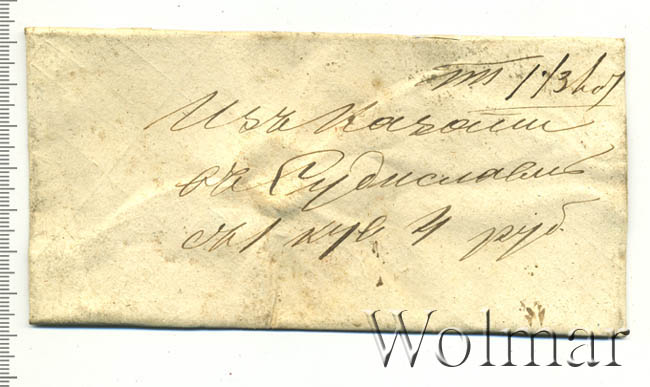 Изъ Казани
въ Судиславль
съ 1 кув 4 руб.
Wolmar